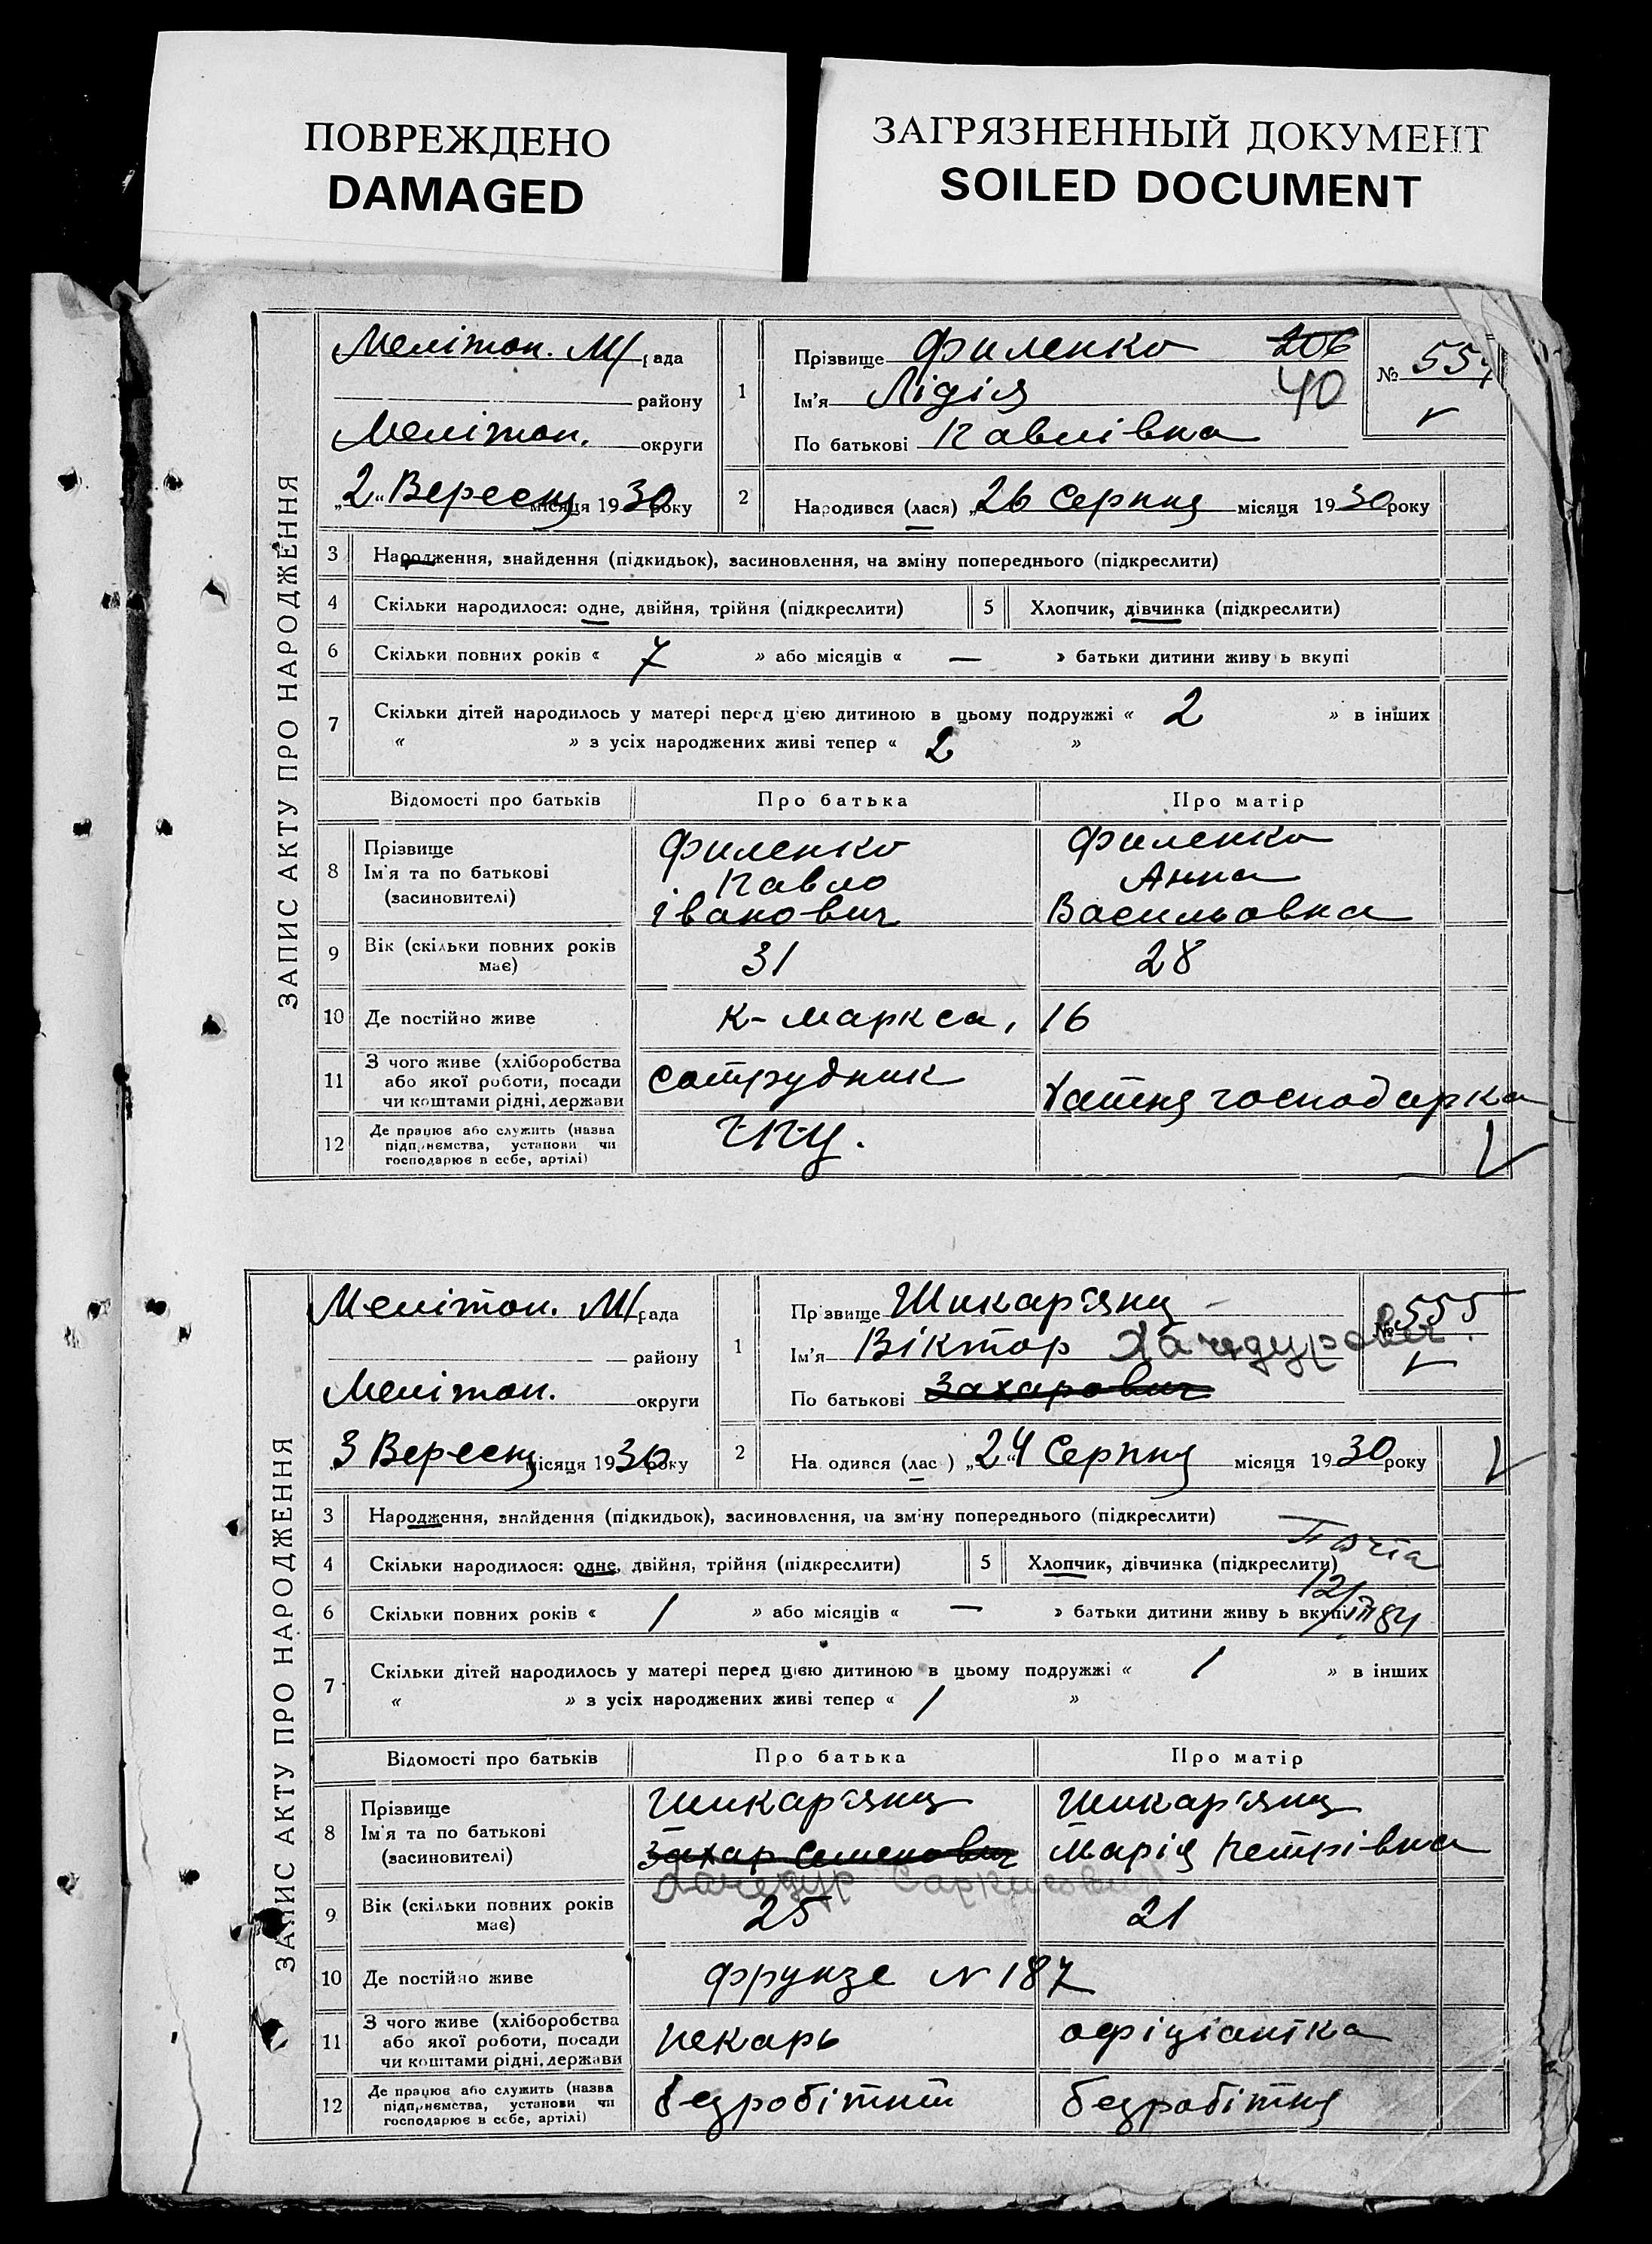 ПОВРЕЖДЕНО
DAMAGED
ЗАГРЯЗНЕННЫЙ ДОКУМЕНТ
SOILED DOCUMENT
ЗАПИС АКТУ ПРО НАРОДЖЕННЯ
Меліточ. М/рада
району
Меліточ. округи
„2“ Вересня місяця 1930 року
1
Прізвище Филенко 206
Ім'я Лідія 40
По батькові Павлівна
№ 554
2 Народився (лася) „26 Серпня місяця 1930 року
3 Народження, знайдення (підкидьок), засиновлення, на зміну попереднього (підкреслити)
4 Скільки народилося: одне, двійня, трійня (підкреслити) 5 Хлопчик, дівчинка (підкреслити)
6 Скільки повних років « 7 » або місяців « — » батьки дитини живу ь вкупі
7 Скільки дітей народилось у матері перед цією дитиною в цьому подружжі « 2 » в інших
« » з усіх народжених живі тепер « 2 »
Відомості про батьків Про батька Про матір
8 Прізвище Филенко Филенко
Ім'я та по батькові Павло Анна
(засиновителі) Іванович Васильовна
9 Вік (скільки повних років має) 31 28
10 Де постійно живе К-Маркса, 16
11 З чого живе (хліборобства
або якої роботи, посади
чи коштами рідні, держави
сотрудник Хатня господарка
12 Де працює або служить (назва
підприємства, установи чи
господарює в себе, артілі)
ЗАПИС АКТУ ПРО НАРОДЖЕННЯ
Меліточ. М/рада
району
Меліточ. округи
3 Вересня місяця 1930 року
1
Прізвище Шикар'янц
Ім'я Віктор Хачедурович
По батькові Захарович
№ 555
2 На одився (лас ) „24“ Серпня місяця 1930 року
3 Народження, знайдення (підкидьок), засиновлення, на зміну попереднього (підкреслити)
4 Скільки народилося: одне, двійня, трійня (підкреслити) 5 Хлопчик, дівчинка (підкреслити)
6 Скільки повних років « 1 » або місяців « — » батьки дитини живу ь вкупі
7 Скільки дітей народилось у матері перед цією дитиною в цьому подружжі « 1 » в інших
« » з усіх народжених живі тепер « 1 »
Відомості про батьків Про батька Про матір
8 Прізвище Шикар'янц Шикар'янц
Ім'я та по батькові Захар Семенович Марія Петрівна
(засиновителі) Хачедур Саркисович
9 Вік (скільки повних років має) 25 21
10 Де постійно живе Фрунзе № 187
11 З чого живе (хліборобства
або якої роботи, посади
чи коштами рідні, держави
пекарь офіціантка
12 Де працює або служить (назва
підприємства, установи чи
господарює в себе, артілі)
безробітний безробітня